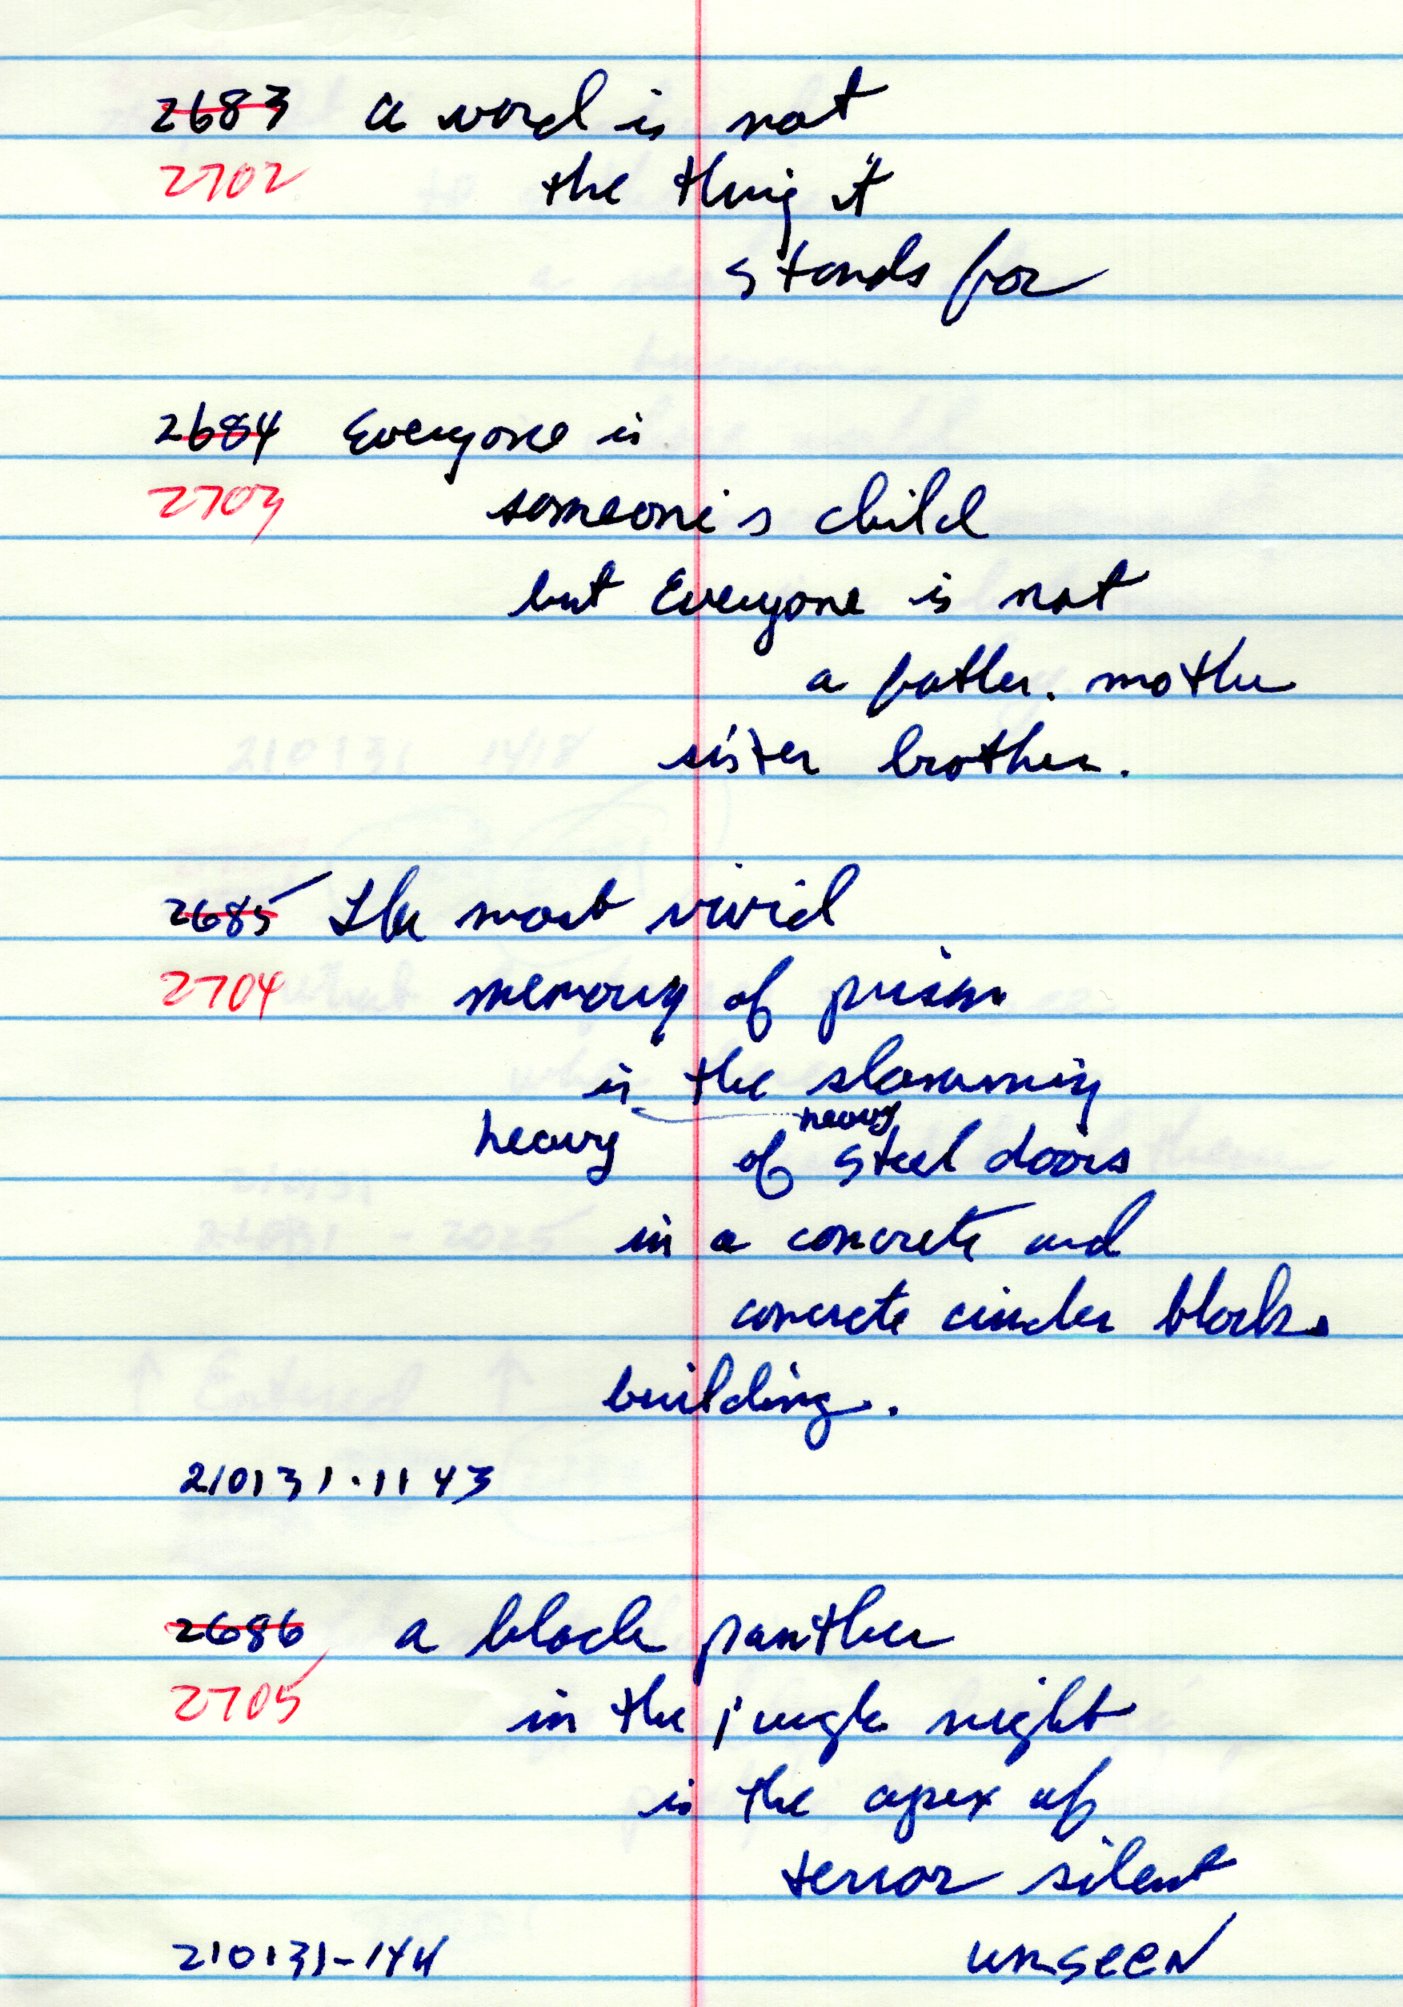 2683 a word is not
2702 the thing it
stands for
2684 Everyone is
2703 someone's child
but Everyone is not
a father. mother
sister brother.
2685 The most vivid
2704 memory of prison
is the slamming
heavy of heavy steel doors
in a concrete and
concrete cinder block
building.
210131.1143
2686 a black panther
2705 in the jungle night
is the apex of
terror silent
210131-1414 unseen